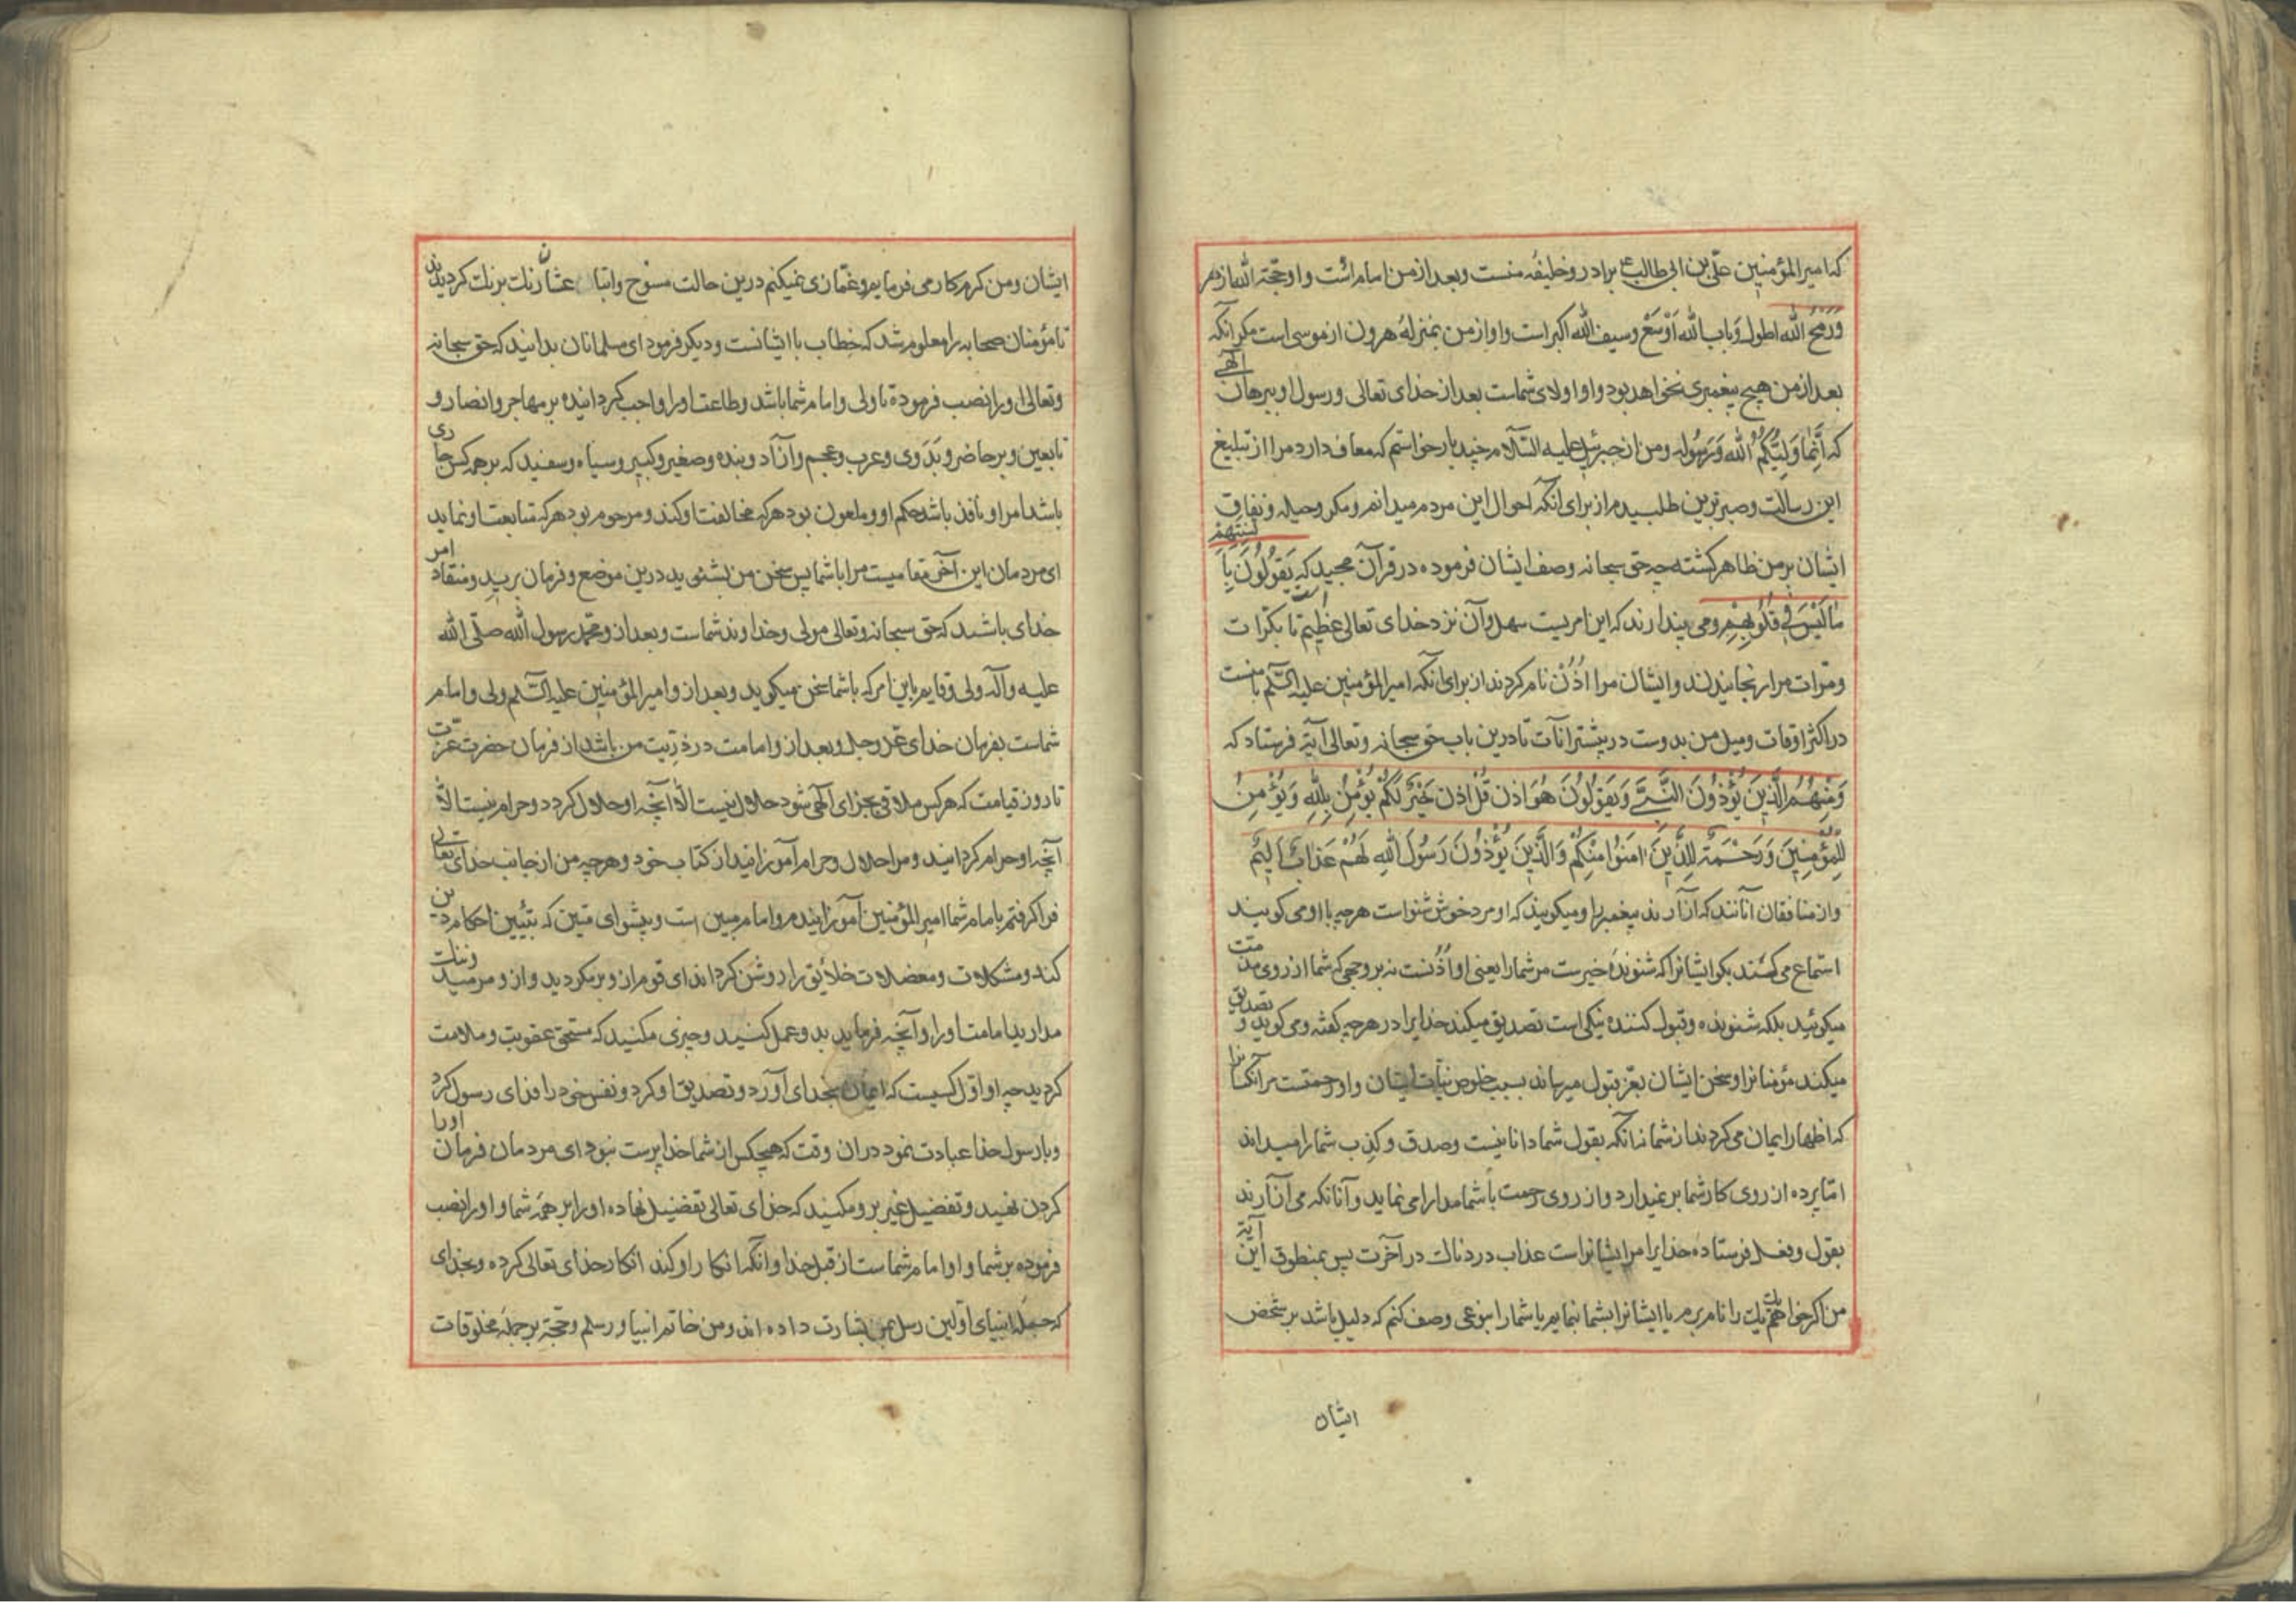 که امیر المؤمنین علی بن ابی طالب ع برادر و خلیفه منست و بعد از من امام است و او حجة الله
و رمح الله اطول و باب الله اوسع و سیف الله اکبر است و او از من بمنزله هرون از موسی است مکر آنکه
بعد از من هیچ پیغمبری نخواهد بود و او اولای شماست بعد از خدای تعالی و رسول او ببرهان آلهی
که اِنَّمَا وَلِیُّکُمُ اللهُ وَرَسُولُه و من از جبرئیل علیه السّلام چند بار خواستم که معاف دارد مرا از تبلیغ
این رسالت و صبر برین طلبیدم از برای آنکه احوال این مردم میدانم و مکر و حیله و نفاق
ایشان بر من ظاهر کشته چه حق سبحانه وصف ایشان فرموده در قرآن مجید که یَقُولُونَ بِاَلسِنَتِهِم
مَا لَیْسَ فِی قُلُوبِهِمْ و می پندارند که این امریست سهل و آن نزد خدای تعالی عظیم است تا بکرات
و مرّات مرا رنجانیدند و ایشان مرا اُذُنْ نام کردند از برای آنکه امیر المؤمنین علیه السّلم با منست
در اکثر اوقات و میل من بدوست در بیشتر آنات تا درین باب حق سبحانه و تعالی آیة فرستاد که
وَمِنْهُمُ الَّذِینَ یُؤْذُونَ النَّبِیَّ وَیَقُولُونَ هُوَ اُذُن قُلْ اُذُن خَیْرٍ لَکُمْ یُؤْمِنُ بِاللهِ وَیُؤْمِنُ
لِلْمُؤْمِنِینَ وَرَحْمَةٌ لِلَّذِینَ اٰمَنُوا مِنْکُمْ وَالَّذِینَ یُؤْذُونَ رَسُولَ اللهِ لَهُمْ عَذَابٌ اَلِیمٌ
و از منافقان آنانند که آزارند پیغمبر را و میکویند که او مرد خوش شنواست هر چه با او می کویند
استماع می کند بکو ایشانرا که شنونده خیرست مر شما را یعنی او اُذُنست نه بر وجهی که شما از روی مذمت
میکوئید بلکه شنونده و قبول کننده نیکی است تصدیق میکند خدایرا در هر چه کفته و می کوید و تصدیق
میکند مؤمنانرا و سخن ایشان بعزّ قبول میرساند بسبب خلوص نیّات ایشان و او رحمتست مر آنکسانرا
که اظهار ایمان می کردند از شما نه آنکه بقول شما دانا نیست و صدق و کذب شما را میداند
امّا پرده از روی کار شما بر نمیدارد و از روی رحمت با شما مدارا می نماید و آنانکه می آزارند
بقول و فعل فرستاده خدایرا مر ایشانراست عذاب دردناک در آخرت پس بمنطوق این آیة
من اکر خواهم یک یک را نام برم یا ایشانرا بشما نمایم یا شما را بنوعی وصف کنم که دلیل باشد بر شخص
ایشان
ایشان و من کرم کار می فرمایم و غمّازی نمیکنم درین حالت
تا مؤمنان صحابه را معلوم شد که خطاب با ایشانست و دیکر فرمود ای مسلمانان بدانید که حق سبحانه
و تعالی او را نصب فرموده تا ولی و امام شما باشد و طاعت او را واجب کردانیده بر مهاجر و انصار و
تابعین و بر حاضر و بَدَوی و عرب و عجم و آزاد و بنده و صغیر و کبیر و سیاه و سفید که بر همه کس جاری
باشد امر او نافذ باشد حکم او و ملعون بود هر که مخالفت او کند و مرحوم بود هر که متابعت او نماید
ای مردمان این آخر مقامیست مرا با شما پس سخن من بشنوید درین موضع و فرمان برید و منقاد امر
خدای باشید که حق سبحانه و تعالی مولی و خداوند شماست و بعد از و محمد رسول الله صلّی الله
علیه و آله ولی و قایم باین امر که با شما سخن میکوید و بعد از و امیر المؤمنین علیه السّلم ولی و امام
شماست بفرمان خدای عزّ و جلّ و بعد از و امامت در ذریّت من باشد از فرمان حضرت عزّت
تا روز قیامت که هر کس ملاقی بجزای آلهی شود حلال نیست الّا آنچه او حلال کرد و حرام نیست الّا
آنچه او حرام کردانید و مرا حلال و حرام آموزانید از کتاب خود و هر چه من از جانب خدای تعالی
فرا کرفتم بامام شما امیر المؤمنین آموزانیدم و امام مبین است و پیشوای متین که تبیین احکام دین
کند و مشکلات و معضلات خلائق را روشن کرداند ای قوم از و بر مکردید و از و مرمید و ننک
مدارید امامت او را و آنچه فرماید بدو عمل کنید و چیزی مکنید که مستحق عقوبت و ملامت
کردید چه او اوّل کسیست که ایمان بخدای آورد و تصدیق او کرد و نفس خود را فدای رسول کرد
و با رسول خدا عبادت نمود در آن وقت که هیچکس از شما خداپرست نبود ای مردمان فرمان او را
کردن نهید و تفضیل غیر برو مکنید که خدای تعالی تفضیل نهاده او را بر همه شما و او را نصب
فرموده بر شما و او امام شماست از قبل خدا و آنکه انکار او کند انکار خدای تعالی کرده و بخدای
که جمله انبیای اوّلین و رسل بمن بشارت داده اند و من خاتم انبیا و رسلم و حجّة بر جمله مخلوقات